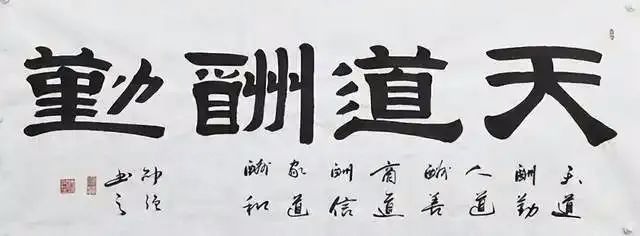 天道酬勤
天道
酬勤
人道
酬善
商道
酬信
家道
酬和
书